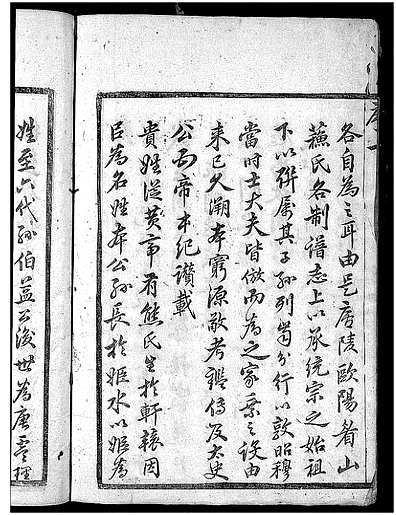 序一
各自為之耳由是廬陵歐陽眉山
蘇氏各制譜志上以承統宗之始祖
下以聯屬其子孫列齒分行以敦昭穆
當時士大夫皆倣而為之家乘之設由
來已久溯本窮源敬考鑑傳及太史
公五帝本紀讚載
貴姓從黃帝有熊氏生於軒轅因
以為名姓本公孫長於姬水以姬為
姓至六代孫伯益公後世為唐虞理